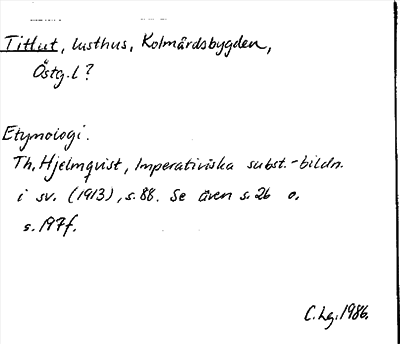 Titlut, lusthus, Kolmårdsbygden,
Östg. l?
Etymologi.
Th. Hjelmqvist, Imperativiska subst.-bildn.
i sv. (1913), s. 88. Se även s. 26 o.
s. 197f.
C. Lg. 1986.